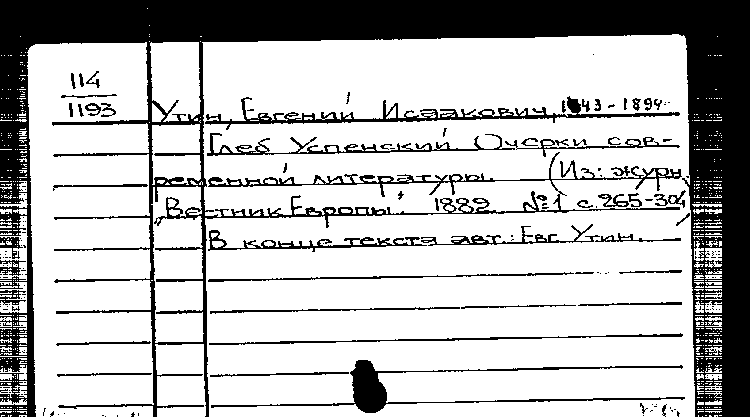 114
1193
Утин, Евгений Исаакович, 1843-1894
Глеб Успенский. Очерки сов-
ременной литературы. (Из: журн.
"Вестник Европы". 1882 №1 с. 265-304)
В конце текста авт.: Евг. Утин.